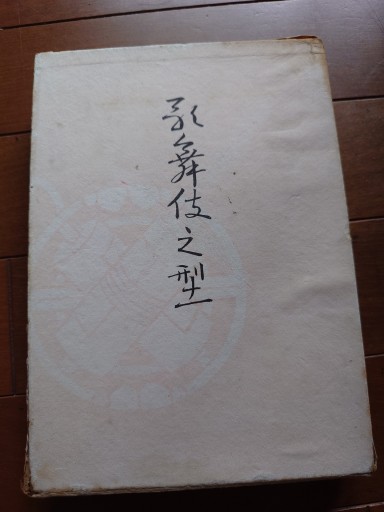 歌舞伎之型